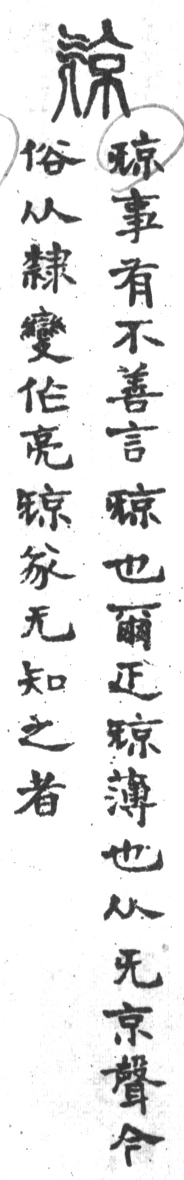 𣄴
𣄴事有不善言𣄴也爾疋𣄴薄也从旡京聲今
俗从隸變作亮𣄴㒸无知之者